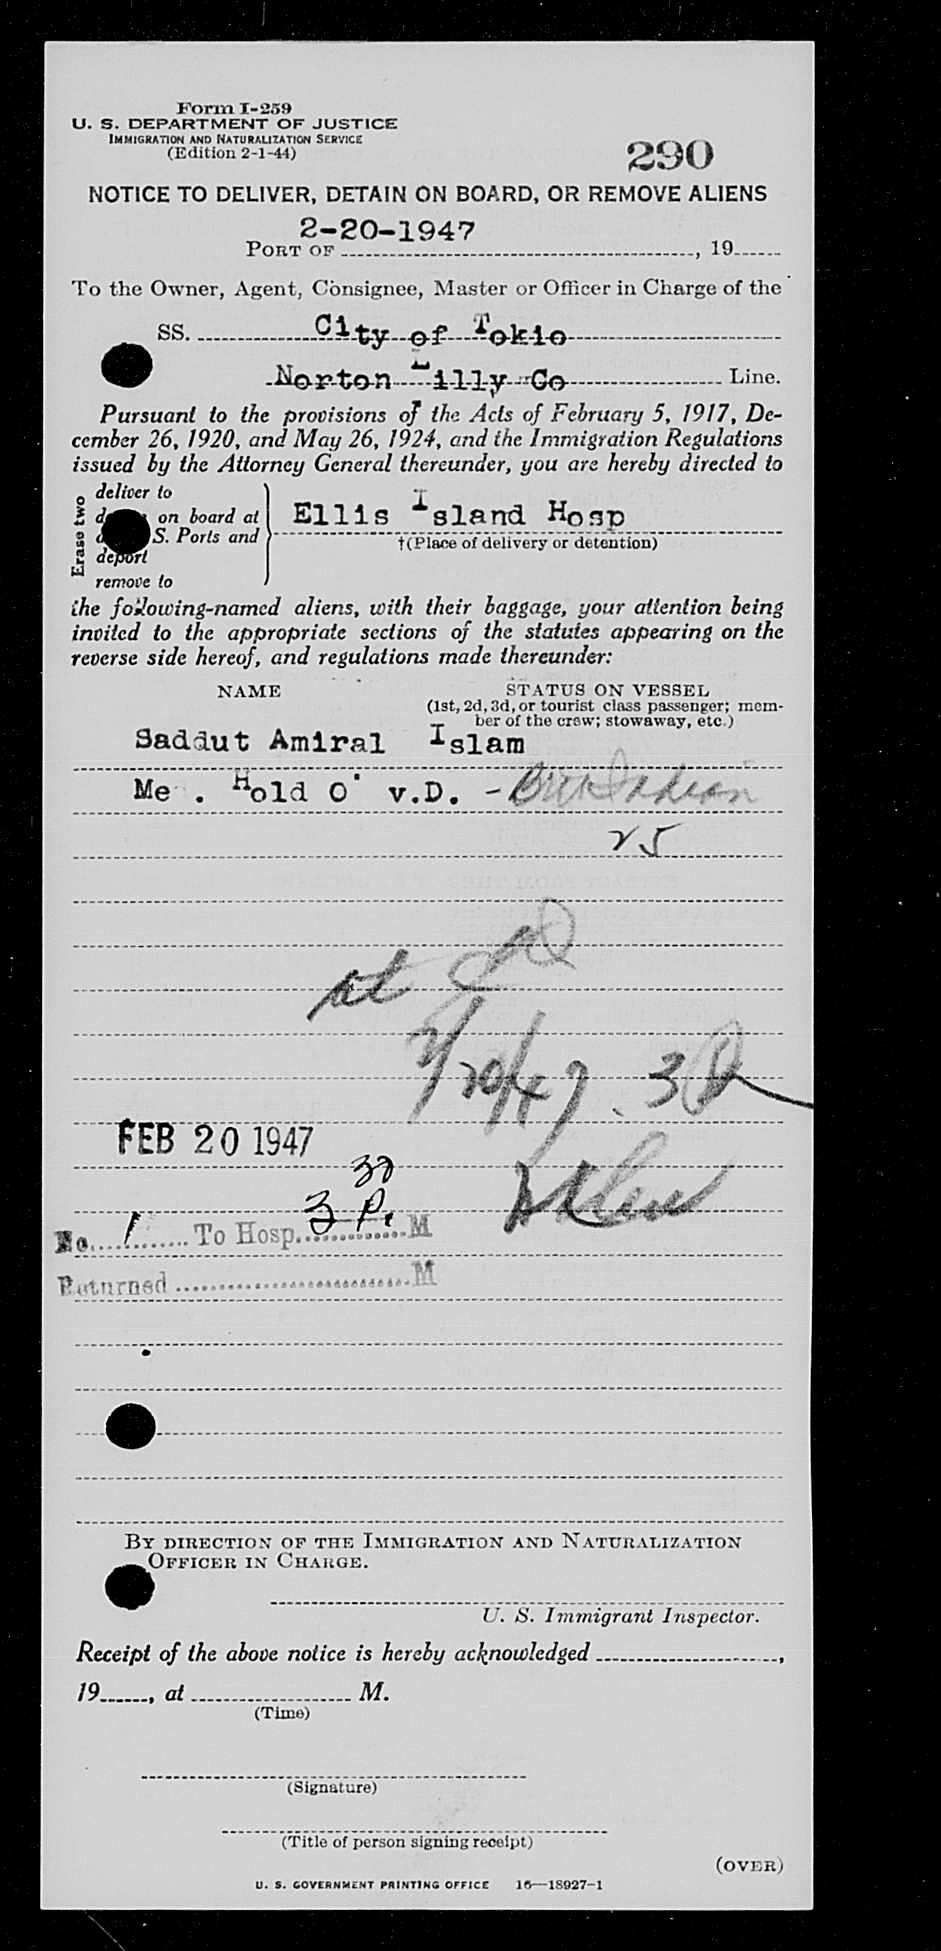 Form I-259
U. S. DEPARTMENT OF JUSTICE
IMMIGRATION AND NATURALIZATION SERVICE
(Edition 2-1-44)
290
NOTICE TO DELIVER, DETAIN ON BOARD, OR REMOVE ALIENS
2-20-1947
PORT OF , 19
To the Owner, Agent, Consignee, Master or Officer in Charge of the
SS. City of Tokio
Norton Lilly Co Line.
Pursuant to the provisions of the Acts of February 5, 1917, De-
cember 26, 1920, and May 26, 1924, and the Immigration Regulations
issued by the Attorney General thereunder, you are hereby directed to
Erase two
deliver to
on board at
S. Ports and
deport
remove to
Ellis Island Hosp
†(Place of delivery or detention)
the following-named aliens, with their baggage, your attention being
invited to the appropriate sections of the statutes appearing on the
reverse side hereof, and regulations made thereunder:
NAME STATUS ON VESSEL
(1st, 2d, 3d, or tourist class passenger; mem-
ber of the crew; stowaway, etc.)
Saddut Amiral Islam
Me . Hold O' v.D. - Indian
25
at
2/20/47. 3
FEB 20 1947
30
No. 1 To Hosp. 3 P. M
Returned M
BY DIRECTION OF THE IMMIGRATION AND NATURALIZATION
OFFICER IN CHARGE.
U. S. Immigrant Inspector.
Receipt of the above notice is hereby acknowledged ,
19 , at M.
(Time)
(Signature)
(Title of person signing receipt)
(OVER)
U. S. GOVERNMENT PRINTING OFFICE 16—18927-1